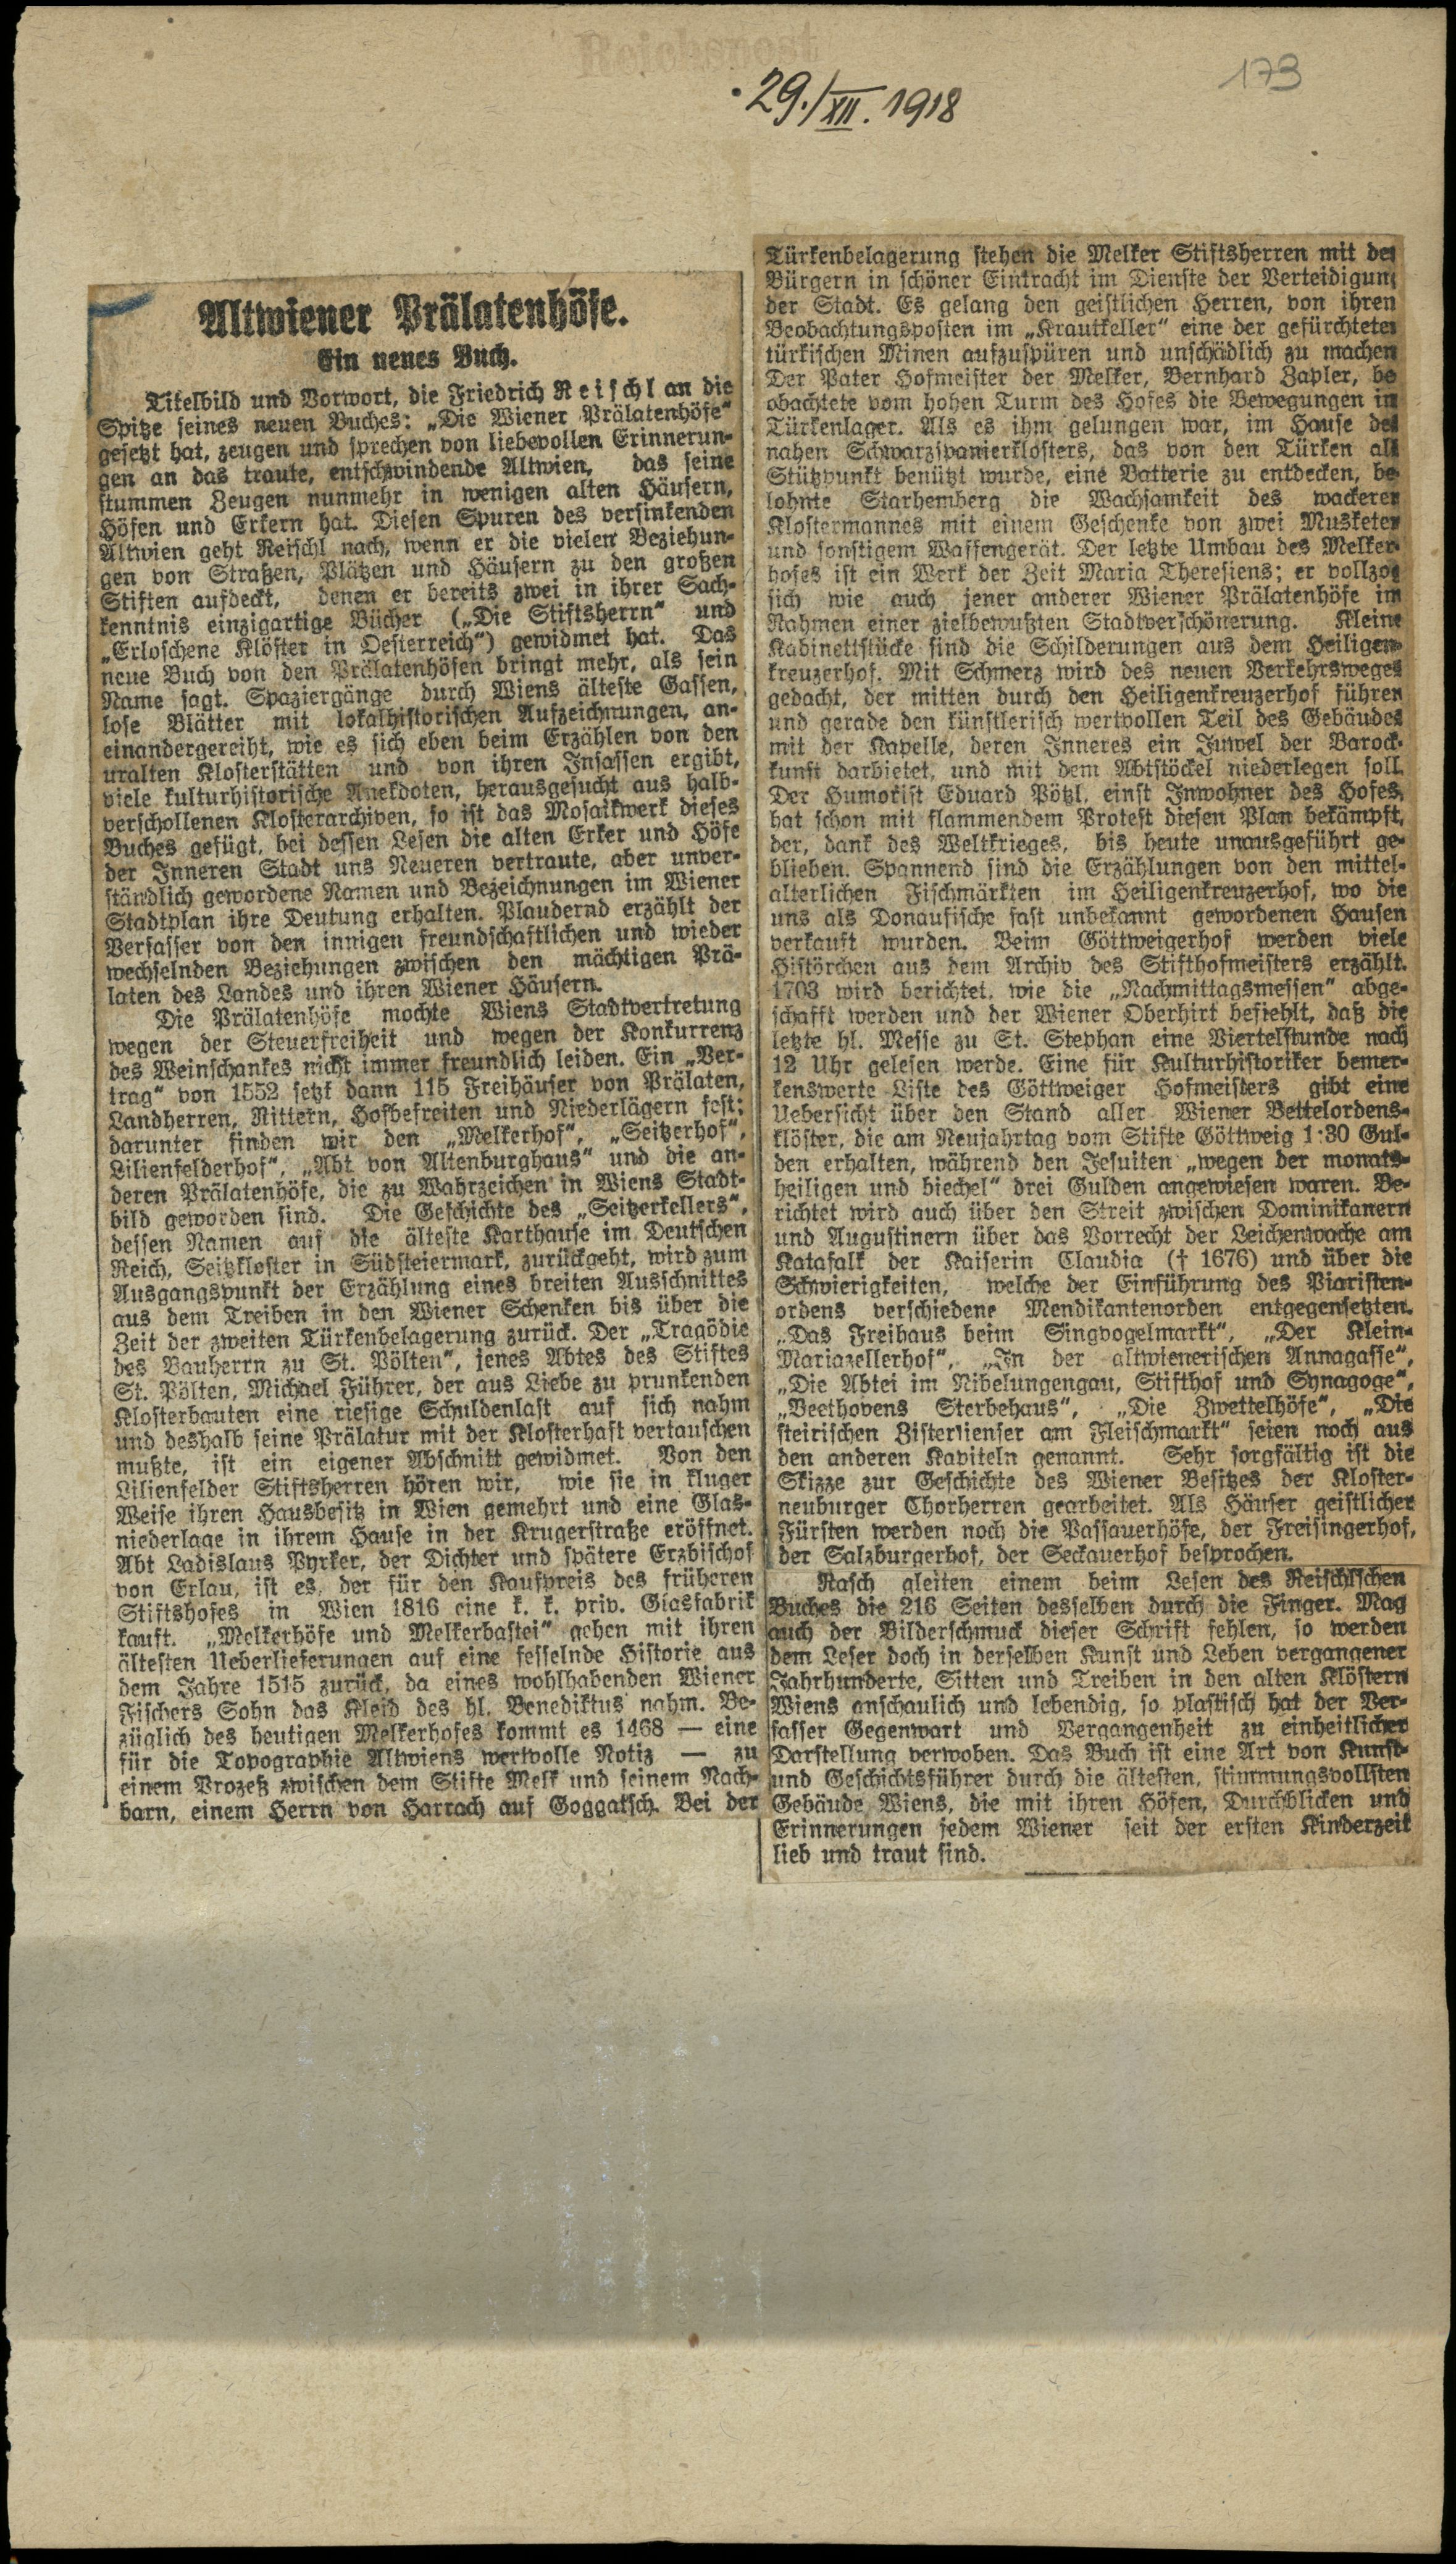 Reichspost
29./XII. 1918
173
Altwiener Prälatenhöfe.
Ein neues Buch.
Titelbild und Vorwort, die Friedrich Reischl an die
Spitze seines neuen Buches: „Die Wiener Prälatenhöfe"
gesetzt hat, zeugen und sprechen von liebevollen Erinnerun-
gen an das traute, entschwindende Altwien, das seine
stummen Zeugen nunmehr in wenigen alten Häusern,
Höfen und Erkern hat. Diesen Spuren des versinkenden
Altwien geht Reischl nach, wenn er die vielen Beziehun-
gen von Straßen, Plätzen und Häusern zu den großen
Stiften aufdeckt, denen er bereits zwei in ihrer Sach-
kenntnis einzigartige Bücher („Die Stiftsherrn" und
„Erloschene Klöster in Oesterreich") gewidmet hat. Das
neue Buch von den Prälatenhöfen bringt mehr, als sein
Name sagt. Spaziergänge durch Wiens älteste Gassen,
lose Blätter mit lokalhistorischen Aufzeichnungen, an-
einandergereiht, wie es sich eben beim Erzählen von den
uralten Klosterstätten und von ihren Insassen ergibt,
viele kulturhistorische Anekdoten, herausgesucht aus halb-
verschollenen Klosterarchiven, so ist das Mosaikwerk dieses
Buches gefügt, bei dessen Lesen die alten Erker und Höfe
der Inneren Stadt uns Neueren vertraute, aber unver-
ständlich gewordene Namen und Bezeichnungen im Wiener
Stadtplan ihre Deutung erhalten. Plaudernd erzählt der
Verfasser von den innigen freundschaftlichen und wieder
wechselnden Beziehungen zwischen den mächtigen Prä-
laten des Landes und ihren Wiener Häusern.
Die Prälatenhöfe mochte Wiens Stadtvertretung
wegen der Steuerfreiheit und wegen der Konkurrenz
des Weinschankes nicht immer freundlich leiden. Ein „Ver-
trag" von 1552 setzt dann 115 Freihäuser von Prälaten,
Landherren, Rittern, Hofbefreiten und Niederlägern fest;
darunter finden wir den „Melkerhof", „Seitzerhof",
Lilienfelderhof", „Abt von Altenburghaus" und die an-
deren Prälatenhöfe, die zu Wahrzeichen in Wiens Stadt-
bild geworden sind. Die Geschichte des „Seitzerkellers",
dessen Namen auf die älteste Karthause im Deutschen
Reich, Seitzkloster in Südsteiermark, zurückgeht, wird zum
Ausgangspunkt der Erzählung eines breiten Ausschnittes
aus dem Treiben in den Wiener Schenken bis über die
Zeit der zweiten Türkenbelagerung zurück. Der „Tragödie
des Bauherrn zu St. Pölten", jenes Abtes des Stiftes
St. Pölten, Michael Führer, der aus Liebe zu prunkenden
Klosterbauten eine riesige Schuldenlast auf sich nahm
und deshalb seine Prälatur mit der Klosterhaft vertauschen
mußte, ist ein eigener Abschnitt gewidmet. Von den
Lilienfelder Stiftsherren hören wir, wie sie in kluger
Weise ihren Hausbesitz in Wien gemehrt und eine Glas-
niederlage in ihrem Hause in der Krugerstraße eröffnet.
Abt Ladislaus Pyrker, der Dichter und spätere Erzbischof
von Erlau, ist es, der für den Kaufpreis des früheren
Stiftshofes in Wien 1816 eine k. k. priv. Glasfabrik
kauft. „Melkerhöfe und Melkerbastei" gehen mit ihren
ältesten Ueberlieferungen auf eine fesselnde Historie aus
dem Jahre 1515 zurück, da eines wohlhabenden Wiener
Fischers Sohn das Kleid des hl. Benediktus nahm. Be-
züglich des heutigen Melkerhofes kommt es 1468 — eine
für die Topographie Altwiens wertvolle Notiz — zu
einem Prozeß zwischen dem Stifte Melk und seinem Nach-
barn, einem Herrn von Harrach auf Goggatsch. Bei der
Türkenbelagerung stehen die Melker Stiftsherren mit de
Bürgern in schöner Eintracht im Dienste der Verteidigun
der Stadt. Es gelang den geistlichen Herren, von ihren
Beobachtungsposten im „Krautkeller" eine der gefürchteten
türkischen Minen aufzuspüren und unschädlich zu machen
Der Pater Hofmeister der Melker, Bernhard Zapler, be
obachtete vom hohen Turm des Hofes die Bewegungen im
Türkenlager. Als es ihm gelungen war, im Hause des
nahen Schwarzspanierklosters, das von den Türken als
Stützpunkt benützt wurde, eine Batterie zu entdecken, be-
lohnte Starhemberg die Wachsamkeit des wackeren
Klostermannes mit einem Geschenke von zwei Musketen
und sonstigem Waffengerät. Der letzte Umbau des Melker-
hofes ist ein Werk der Zeit Maria Theresiens; er vollzog
sich wie auch jener anderer Wiener Prälatenhöfe im
Rahmen einer zielbewußten Stadtverschönerung. Kleine
Kabinettstücke sind die Schilderungen aus dem Heiligen-
kreuzerhof. Mit Schmerz wird des neuen Verkehrsweges
gedacht, der mitten durch den Heiligenkreuzerhof führen
und gerade den künstlerisch wertvollen Teil des Gebäudes
mit der Kapelle, deren Inneres ein Juwel der Barock-
kunst darbietet, und mit dem Abtstöckel niederlegen soll.
Der Humorist Eduard Pötzl, einst Inwohner des Hofes,
hat schon mit flammendem Protest diesen Plan bekämpft,
der, dank des Weltkrieges, bis heute unausgeführt ge-
blieben. Spannend sind die Erzählungen von den mittel-
alterlichen Fischmärkten im Heiligenkreuzerhof, wo die
uns als Donaufische fast unbekannt gewordenen Hausen
verkauft wurden. Beim Göttweigerhof werden viele
Histörchen aus dem Archiv des Stifthofmeisters erzählt.
1703 wird berichtet, wie die „Nachmittagsmessen" abge-
schafft werden und der Wiener Oberhirt befiehlt, daß die
letzte hl. Messe zu St. Stephan eine Viertelstunde nach
12 Uhr gelesen werde. Eine für Kulturhistoriker bemer-
kenswerte Liste des Göttweiger Hofmeisters gibt eine
Uebersicht über den Stand aller Wiener Bettelordens-
klöster, die am Neujahrtag vom Stifte Göttweig 1·30 Gul-
den erhalten, während den Jesuiten „wegen der monats-
heiligen und biechel" drei Gulden angewiesen waren. Be-
richtet wird auch über den Streit zwischen Dominikanern
und Augustinern über das Vorrecht der Leichenwache am
Katafalk der Kaiserin Claudia († 1676) und über die
Schwierigkeiten, welche der Einführung des Piaristen-
ordens verschiedene Mendikantenorden entgegensetzten.
„Das Freihaus beim Singvogelmarkt", „Der Klein-
Mariazellerhof", „In der altwienerischen Annagasse",
„Die Abtei im Nibelungengau, Stifthof und Synagoge",
„Beethovens Sterbehaus", „Die Zwettelhöfe", „Die
steirischen Zisterzienser am Fleischmarkt" seien noch aus
den anderen Kapiteln genannt. Sehr sorgfältig ist die
Skizze zur Geschichte des Wiener Besitzes der Kloster-
neuburger Chorherren gearbeitet. Als Häuser geistlicher
Fürsten werden noch die Passauerhöfe, der Freisingerhof,
der Salzburgerhof, der Seckauerhof besprochen.
Rasch gleiten einem beim Lesen des Reischlschen
Buches die 216 Seiten desselben durch die Finger. Mag
auch der Bilderschmuck dieser Schrift fehlen, so werden
dem Leser doch in derselben Kunst und Leben vergangener
Jahrhunderte, Sitten und Treiben in den alten Klöstern
Wiens anschaulich und lebendig, so plastisch hat der Ver-
fasser Gegenwart und Vergangenheit zu einheitlicher
Darstellung verwoben. Das Buch ist eine Art von Kunst-
und Geschichtsführer durch die ältesten, stimmungsvollsten
Gebäude Wiens, die mit ihren Höfen, Durchblicken und
Erinnerungen jedem Wiener seit der ersten Kinderzeit
lieb und traut sind.